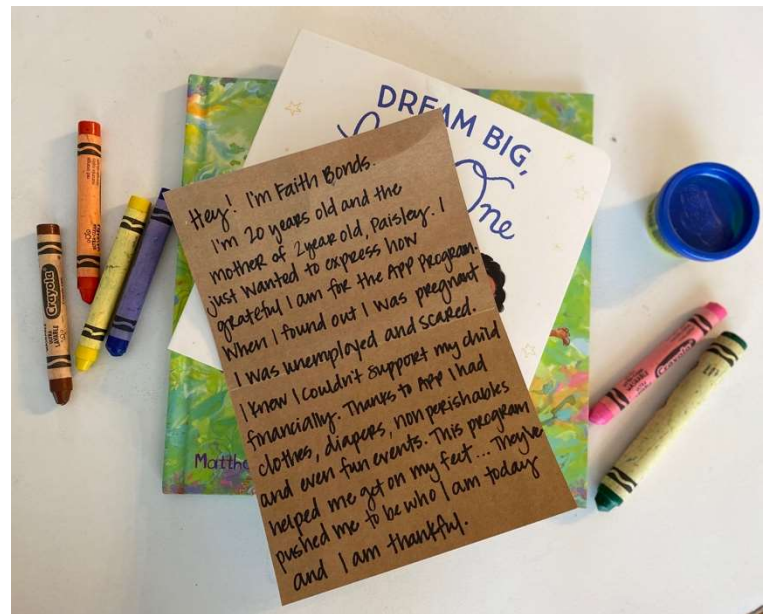 DREAM BIG,
One
Hey! I'm Faith Bonds.
I'm 20 years old and the
mother of 2 year old, Paisley. I
just wanted to express how
grateful I am for the APP Program.
When I found out I was pregnant
I was unemployed and scared.
I knew I couldn't support my child
financially. Thanks to APP I had
clothes, diapers, non perishables
and even fun events. This program
helped me get on my feet... They've
pushed me to be who I am today
and I am thankful.
Matth
Crayola
Crayola